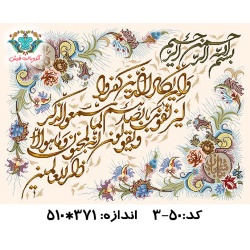 بسم الله الرحمن الرحیم
وان یکاد الذین کفروا
لیزلقونک بابصارهم لما سمعوا الذکر
ویقولون انه لمجنون وما هو الا
ذکر للعالمین
کد:۵۰-۳ اندازه: ۳۷۱*۵۱۰